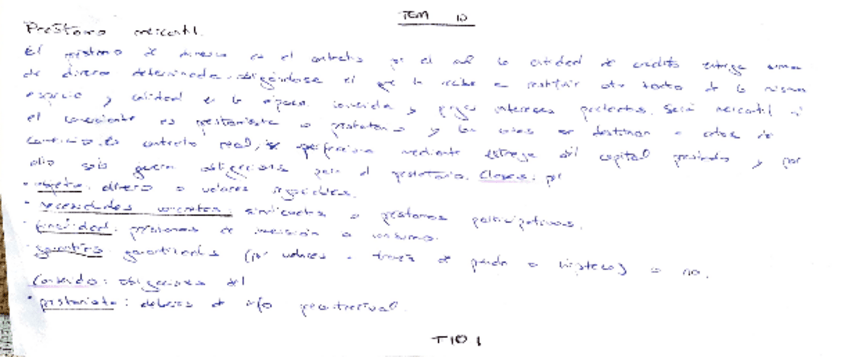 TEMA 10
Préstamo mercantil.
El préstamo de dinero es el contrato por el cual la entidad de crédito entrega suma
de dinero determinada, obligándose el que la recibe a restituir otro tanto de la misma
especie y calidad en la época convenida y pagar intereses pactados. Será mercantil si
el comerciante es prestamista o prestatario y las cosas se destinan a actos de
comercio. Es contrato real, se perfecciona mediante entrega del capital prestado y por
ello solo genera obligaciones para el prestatario. Clases: pr
• objeto: dinero o valores
• necesidades concretas: sindicados o préstamos participativos.
• finalidad: préstamos de inversión o consumo.
• garantías garantizados (por valores a través de prenda o hipoteca) o no.
Contenido: obligaciones del
• prestamista: deberes de info precontractual.
T10 1